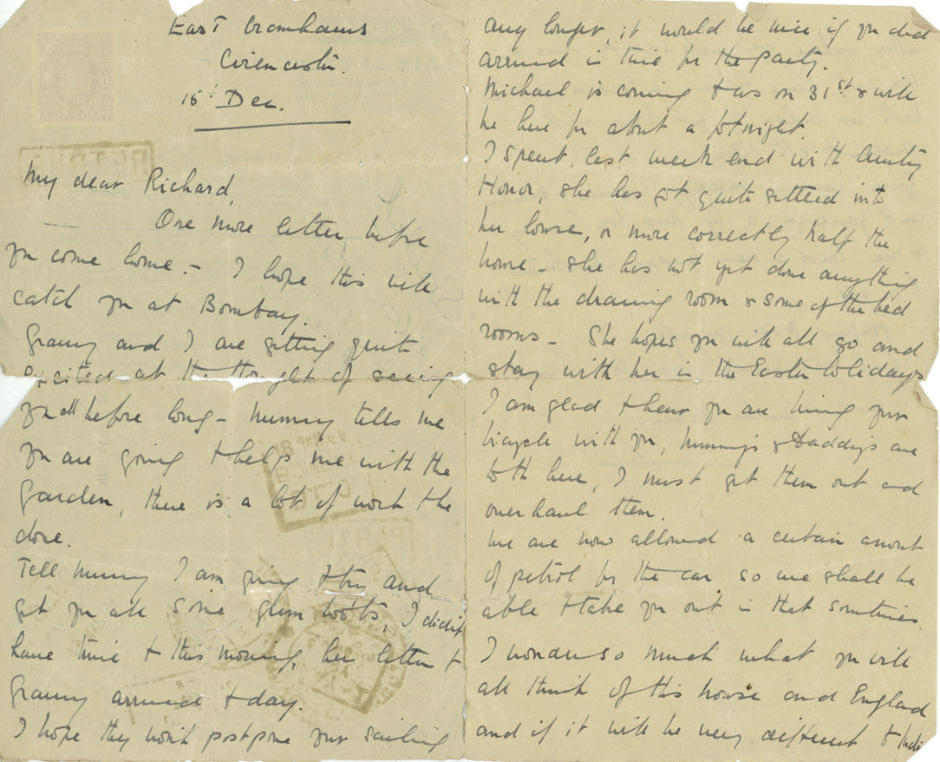 East Cromhams
Cirencester.
15t Dec.
My dear Richard,
One more letter before
you come home. - I hope this will
catch you at Bombay.
Granny and I are getting quite
excited at the thought of seeing
you all before long - Mummy tells me
you are going to help me with the
Garden, there is a lot of work to be
done.
Tell Mummy I am going to try and
get you all some gum boots, I didn't
have time to this morning, her letter to
Granny arrived today.
I hope they won't postpone your sailing
any longer, it would be nice if you did
arrived in time for the party.
Michael is coming to us on 31st & will
be here for about a fortnight.
I spent last week end with Aunty
Honor, she has got quite settled into
her house, or more correctly half the
house - she has not yet done anything
with the drawing room & some of the bed
rooms - She hopes you will all go and
stay with her in the Easter holidays
I am glad to hear you are bringing your
bicycle with you, Mummy's & Daddy's are
both here, I must get them out and
overhaul them.
We are now allowed a certain amount
of petrol for the car so we shall be
able to take you out in that sometimes.
I wonder so much what you will
all think of this house and England
and if it will be very different to India